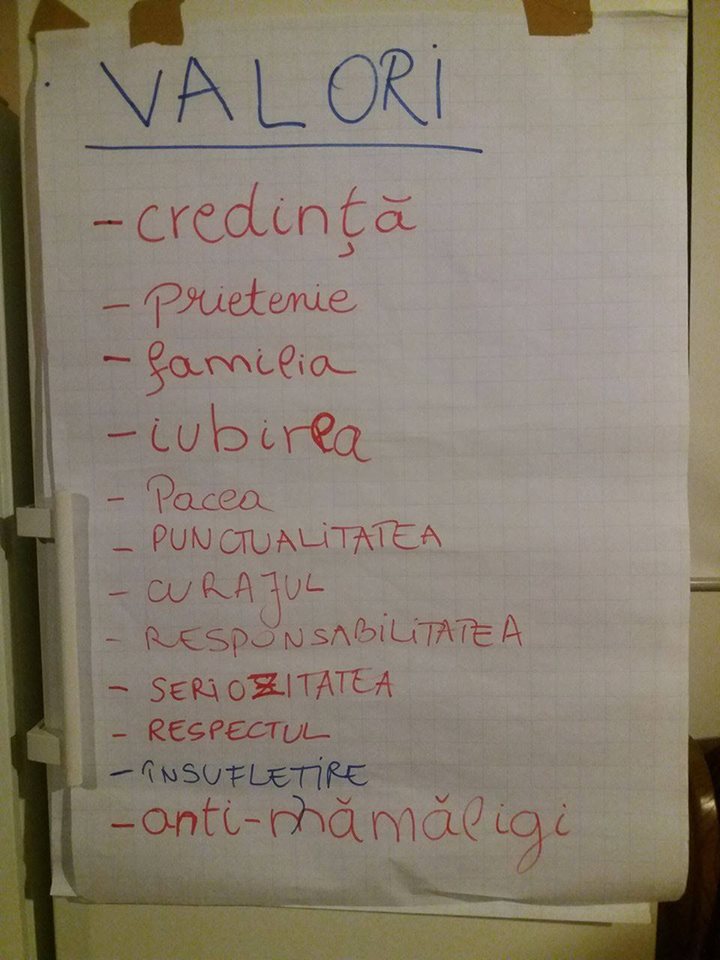 VALORI
- credință
- Prietenie
- familia
- iubirea
- Pacea
- PUNCTUALITATEA
- CURAJUL
- RESPONSABILITATEA
- SERIOZITATEA
- RESPECTUL
- ÎNSUFLEȚIRE
- anti-mămăligi